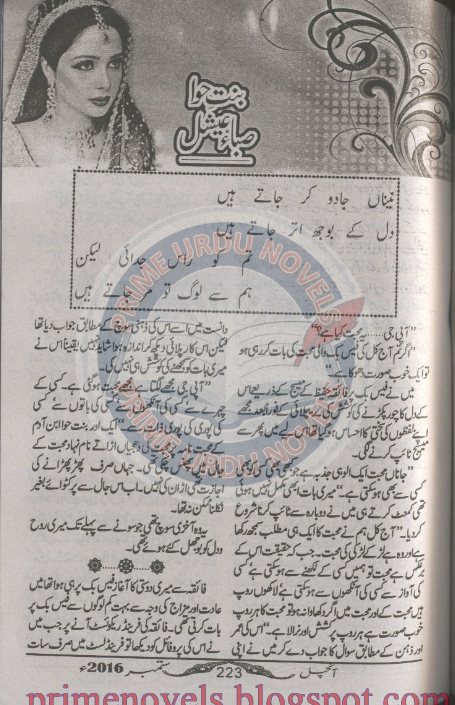 بنت حوا
صبا عیشل
نیناں جادو کر جاتے ہیں
دل کے بوجھ اتر جاتے ہیں
تم کو راس جدائی لیکن
ہم سے لوگ تو مر جاتے ہیں
”آپی جی ...... یہ محبت کیا ہے؟“
”اگر تم آج کل کی فیس بک والی محبت کی بات کر رہی ہو
تو ایک خوب صورت دھوکا ہے۔“
میں نے فیس بک پر فائقہ کے میسج کے ذریعے اس
کے دل کا چور پکڑنے کی کوشش کی
اپنے لفظوں کی سختی کا احساس ہوا تھا اس لیے میں پھر سے
میسج ٹائپ کرنے لگی۔
”جاناں محبت ایک الوہی جذبہ ہے جو کبھی بھی کسی کو بھی
کسی سے بھی ہو سکتی ہے۔“ میری بات ابھی مکمل نہیں ہوئی
تھی کمنٹ کرتے ہی میں نے دوبارہ سے ٹائپ کرنا شروع
کر دیا۔ ”آج کل ہم نے محبت کا ایک ہی مطلب سمجھ رکھا
ہے اور وہ ہے لڑکے لڑکی کی محبت۔ جب کہ حقیقت اس کے
برعکس ہے محبت تو ہمیں کسی کے لکھنے سے ہو سکتی ہے‘ کسی
کی آواز سے کسی کی آنکھوں سے ہو سکتی ہے‘ لاکھوں روپ
ہیں محبت کے اور محبت میں اگر دکھاوا نہ ہو تو محبت کا ہر روپ
خوب صورت ہے ہر روپ پر کشش اور نرالا ہے۔“ اس کی عمر
اور ذہن کے مطابق سوال کا جواب دے کر میں نے اپنی
دانست میں اسے اس کی ذہنی سوچ کے مطابق جواب دیا تھا
لیکن اس کا رپلائی دیکھ کر اندازہ ہوا شاید نہیں یقیناً اس نے
میری بات کو سمجھنے کی کوشش ہی نہیں کی۔
”آپی جی مجھے لگتا ہے مجھے محبت ہو گئی ہے۔ کسی کے
چہرے سے‘ کسی کی آنکھوں سے‘ کسی کی باتوں سے‘ کسی
کی پوری کی پوری ذات سے۔“ اور ایک بنت حوا ابن آدم
کے ہاتھوں کی دھجیاں اڑاتے نام نہاد محبت کے
جال میں پھنس چکی تھی۔ جہاں صرف پھڑپھڑانے کی
اجازت تھی اڑان کی نہیں۔ اب اس جال سے پر کٹوائے بغیر
نکلنا ممکن نہ تھا۔
یہ وہ آخری سوچ تھی جو سونے سے پہلے تک میری روح
و دل کو بوجھل کئے ہوئے تھی۔
فائقہ سے میری دوستی کا آغاز فیس بک پر ہی ہوا تھا میں
عادت اور مزاج کی وجہ سے بہت کم لوگوں سے فیس بک پر
بات کرتی تھی۔ فائقہ کی فرینڈ ریکوئسٹ آنے پر جب میں
نے اس کی پروفائل کو دیکھا تو فرینڈ لسٹ میں صرف سات
آنچل 223 ستمبر 2016ء
PRIME URDU NOVELS
PRIME URDU NOVELS
primenovels.blogspot.com